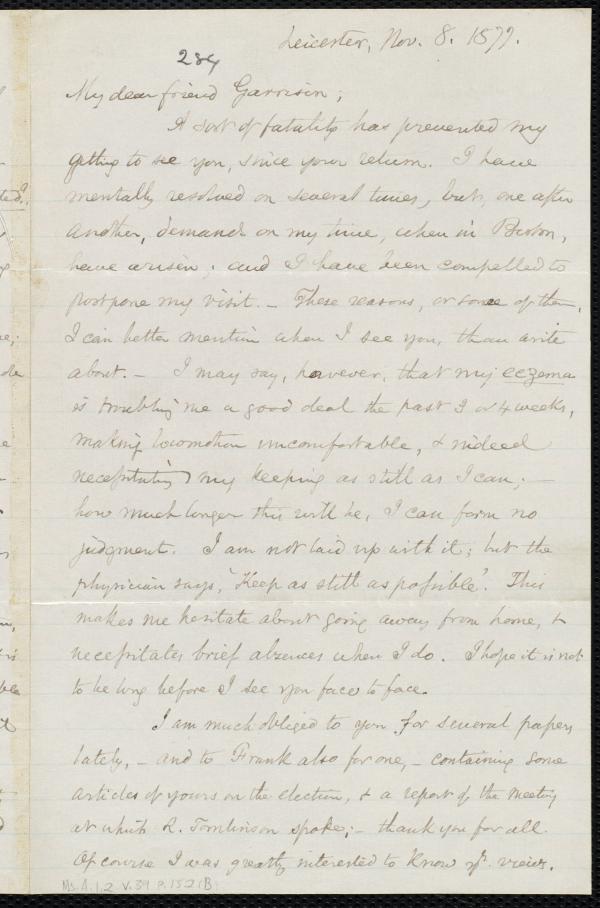 Leicester, Nov. 8. 1877.
284
My dear friend Garrison;
A sort of fatality has prevented my
getting to see you, since your return. I have
mentally resolved on several times, but, one after
another, demands on my time, when in Boston,
have arisen; and I have been compelled to
postpone my visit. - These reasons, or some of them,
I can better mention when I see you, than write
about. - I may say, however, that my eczema
is troubling me a good deal the past 3 or 4 weeks,
making locomotion uncomfortable, & indeed
necessitating my keeping as still as I can; -
how much longer this will be, I can form no
judgment. I am not laid up with it; but the
physician says, "Keep as still as possible". This
makes me hesitate about going away from home, &
necessitates brief absences when I do. I hope it is not
to be long before I see you face to face.
I am much obliged to you for several papers
lately, - and to Frank also for one, - containing some
articles of yours on the election, & a report of the meeting
at which R. Tomlinson spoke; - thank you for all.
Of course I was greatly interested to know yr. views.
Ms. A. 1.2 v. 39 p. 152 (B)